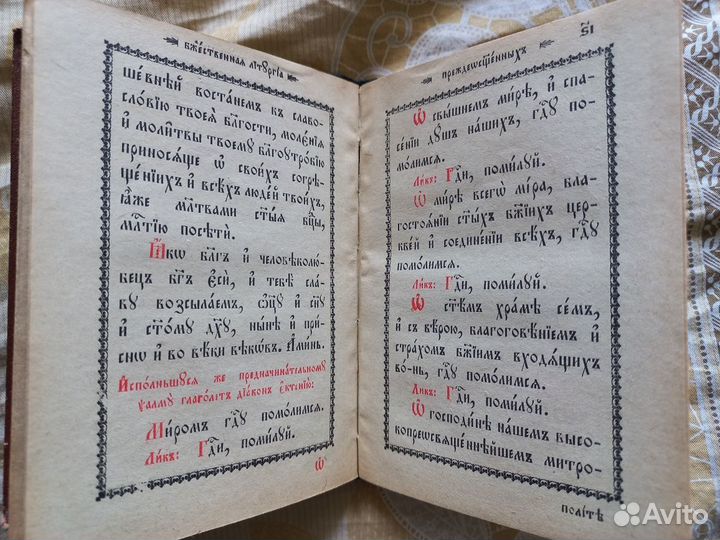 Бж҃ественнаѧ літꙋргі́а
ше́внѣй воста́немъ къ славо-
сло́вїю твоеѧ̀ бл҃гости, моле́нїѧ
и҆ моли̑твы твоемꙋ̀ бл҃гоꙋтро́бїю
приносѧ́ще ѡ҆ свои́хъ согрѣ-
ше́нїихъ и҆ всѣ́хъ люде́й твои́хъ,
ꙗ҆̀же мл҃твами ст҃ы́ѧ бц҃ы,
мл҃тїю посѣтѝ.
Ꙗ҆́кѡ бл҃гъ и҆ человѣколю́-
бецъ бг҃ъ є҆сѝ, и҆ тебѣ̀ сла́-
вꙋ возсыла́емъ, ѻ҆ц҃ꙋ̀ и҆ сн҃ꙋ
и҆ ст҃о́мꙋ дх҃ꙋ, ны́нѣ и҆ при́-
снѡ и҆ во вѣ́ки вѣкѡ́въ. А҆ми́нь.
И҆спо́льньшꙋсѧ же предначина́тельномꙋ
ѱалмꙋ̀ глаго́летъ дїа́конъ є҆ктенїю:
Ми́ромъ гдⷭ҇ꙋ помо́лимсѧ.
Ли́къ: Гдⷭ҇и, поми́лꙋй.
Ѡ҆
Преждеѡсщ҃е́нныхъ
ѕ҃і
Ѡ҆ свы́шнемъ ми́рѣ, и҆ спа-
се́нїи дꙋ́шъ на́шихъ, гдⷭ҇ꙋ по-
мо́лимсѧ.
Ли́къ: Гдⷭ҇и, поми́лꙋй.
Ѡ҆ ми́рѣ всегѡ̀ мі́ра, бла-
гостоѧ́нїи ст҃ы́хъ бж҃їихъ цер-
кве́й и҆ соедине́нїи всѣ́хъ, гдⷭ҇ꙋ
помо́лимсѧ.
Ли́къ: Гдⷭ҇и, поми́лꙋй.
Ѡ҆ ст҃ѣ́мъ хра́мѣ се́мъ,
и҆ съ вѣ́рою, благоговѣ́нїемъ и҆
стра́хомъ бж҃їимъ входѧ́щихъ
во́-нь, гдⷭ҇ꙋ помо́лимсѧ.
Ли́къ: Гдⷭ҇и, поми́лꙋй.
Ѡ҆ господи́нѣ на́шемъ высо-
копреѡсвѧще́ннѣйшемъ митро-
полі́тѣ
Avito